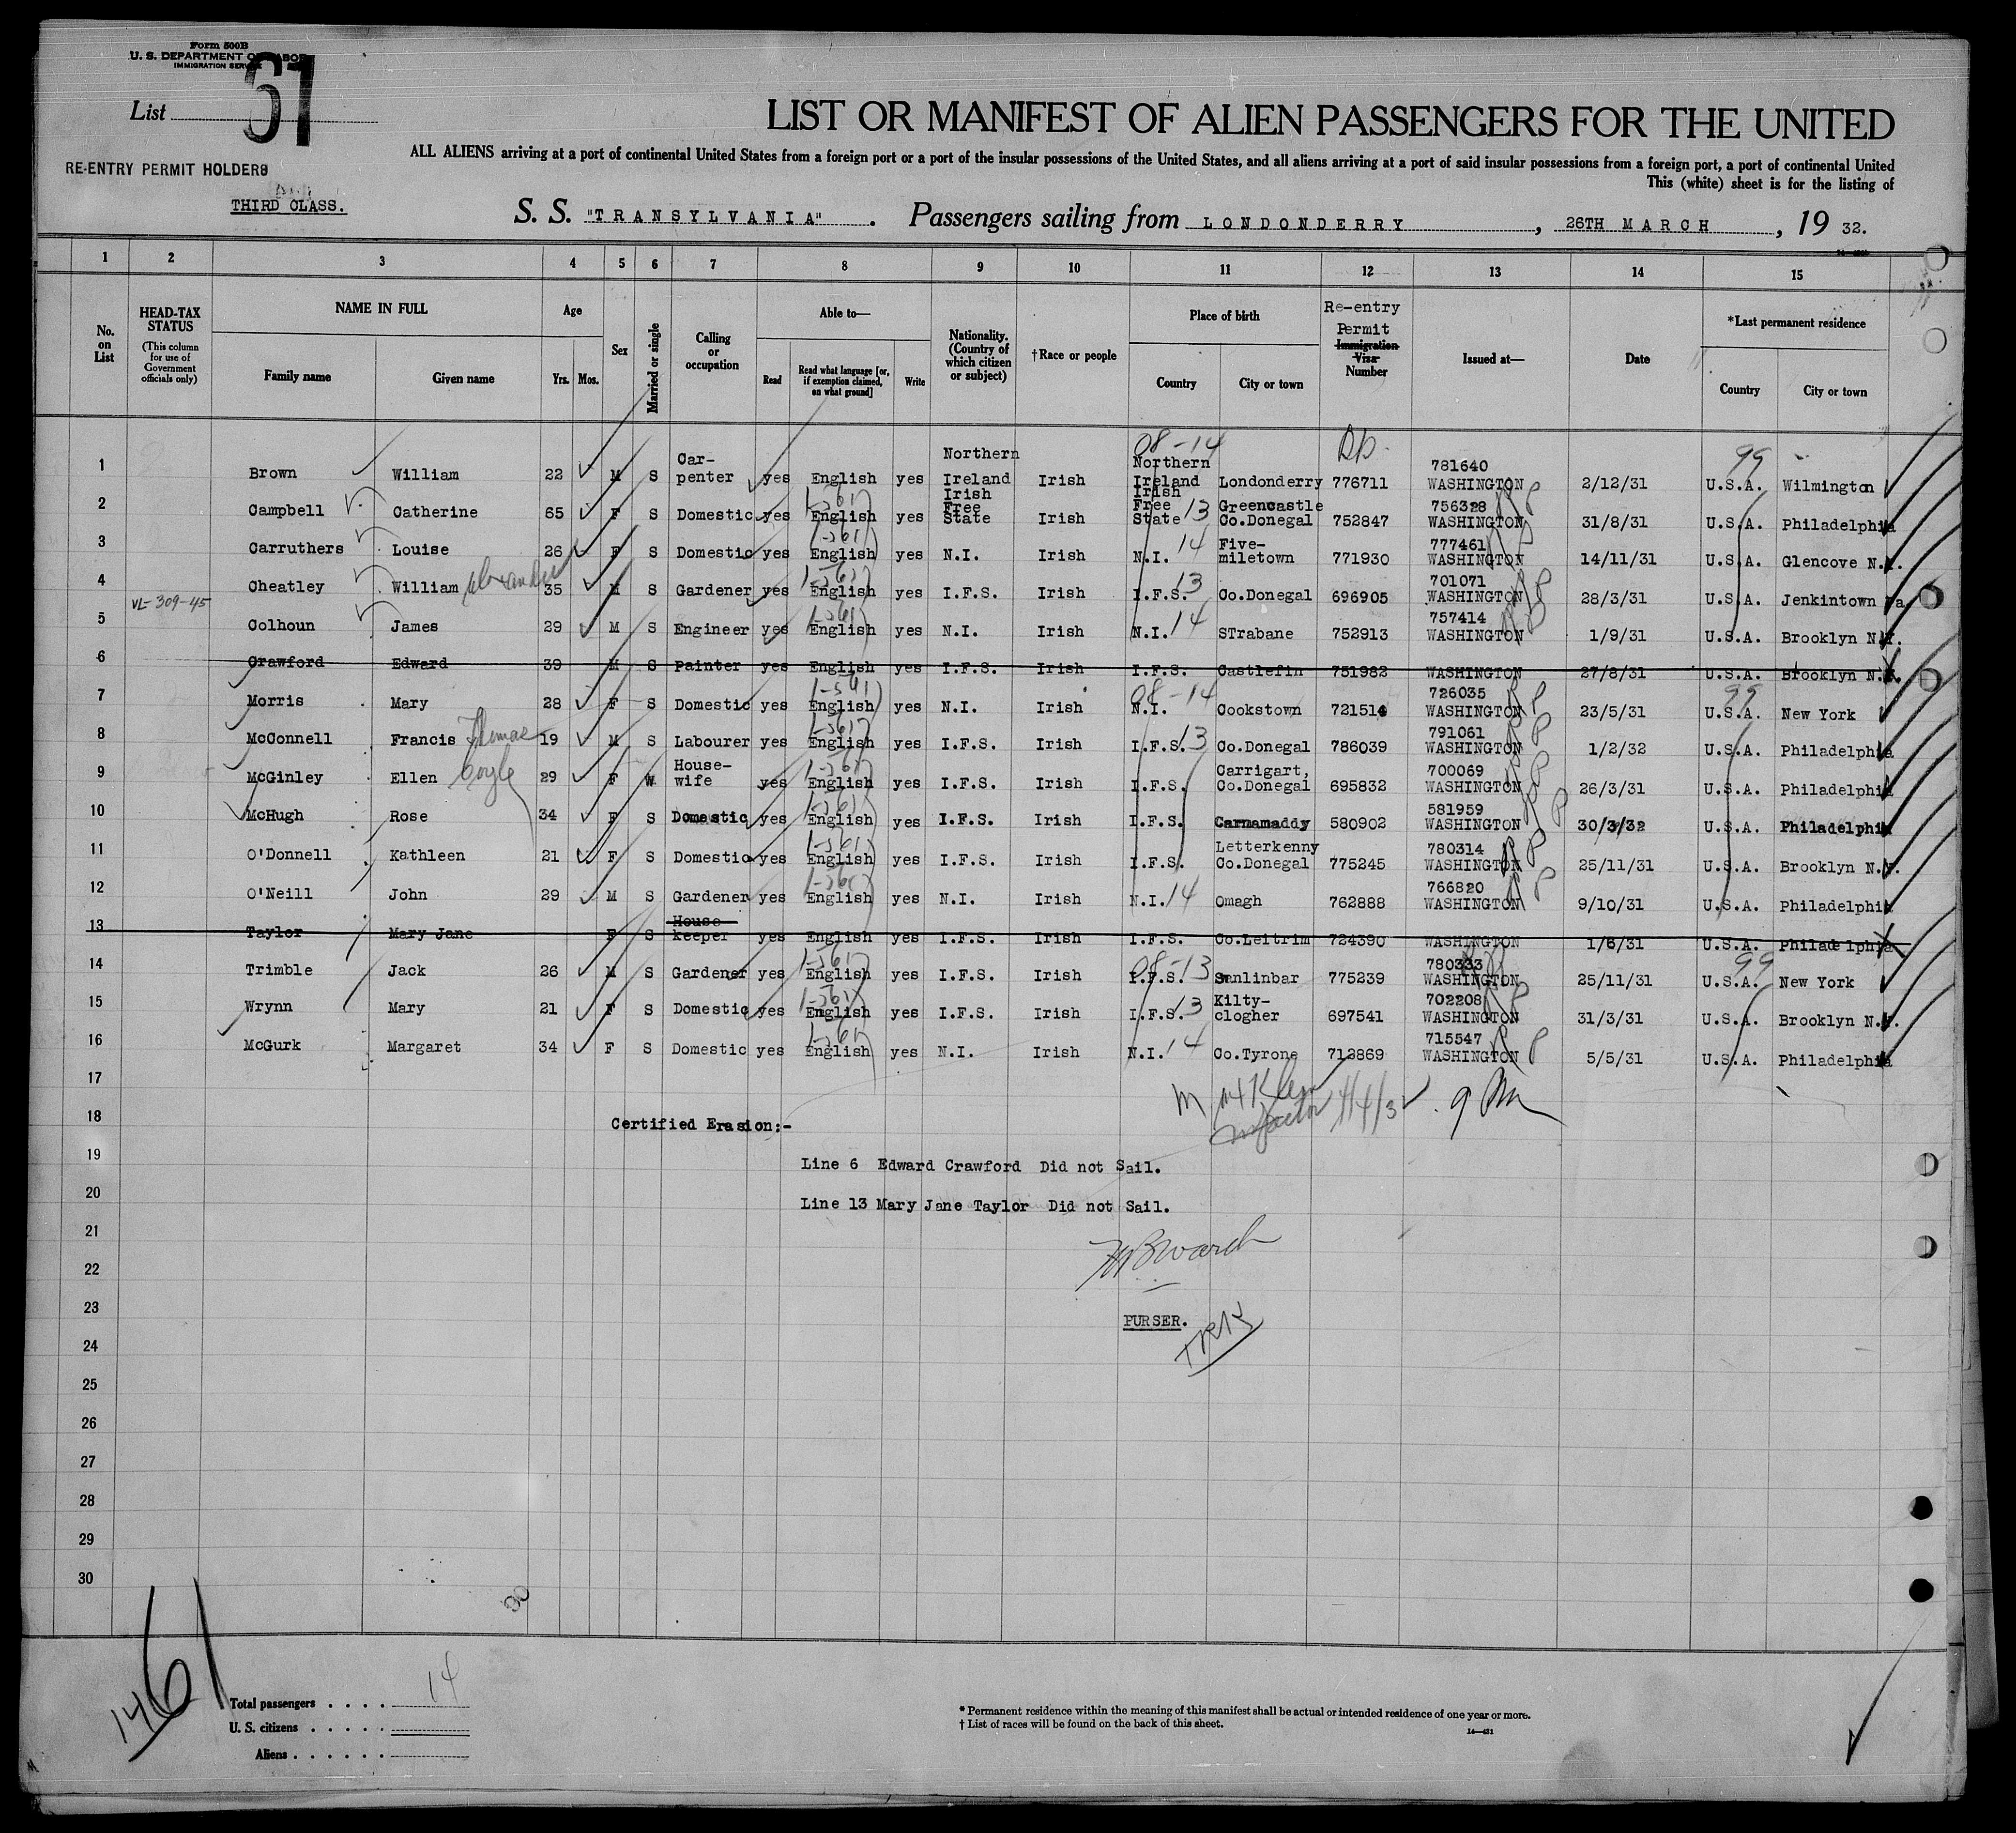 Form 500B
U. S. DEPARTMENT OF LABOR
IMMIGRATION SERVICE
List 61
LIST OR MANIFEST OF ALIEN PASSENGERS FOR THE UNITED
ALL ALIENS arriving at a port of continental United States from a foreign port or a port of the insular possessions of the United States, and all aliens arriving at a port of said insular possessions from a foreign port, a port of continental United
RE-ENTRY PERMIT HOLDERS
This (white) sheet is for the listing of
THIRD CLASS.
S. S. "TRANSYLVANIA" . Passengers sailing from LONDONDERRY , 26TH MARCH , 19 32.
1 2 3 4 5 6 7 8 9 10 11 12 13 14 15
No. on List
HEAD-TAX STATUS
(This column for use of Government officials only)
NAME IN FULL
Family name Given name
Age
Yrs. Mos.
Sex
Married or single
Calling or occupation
Able to—
Read
Read what language [or, if exemption claimed, on what ground]
Write
Nationality. (Country of which citizen or subject)
†Race or people
Place of birth
Country City or town
Re-entry Permit
Immigration Visa Number
Issued at—
Date
*Last permanent residence
Country City or town
08-14 99
1 Brown William 22 M S Car-penter yes English yes Northern Ireland Irish Northern Ireland Londonderry 776711 781640 WASHINGTON 2/12/31 U.S.A. Wilmington
2 Campbell Catherine 65 F S Domestic yes English yes Irish Free State Irish Irish Free State 13 Greencastle Co.Donegal 752847 756328 WASHINGTON 31/8/31 U.S.A. Philadelphia
3 Carruthers Louise 26 F S Domestic yes English yes N.I. Irish N.I. 14 Five-miletown 771930 777461 WASHINGTON 14/11/31 U.S.A. Glencove N.Y.
4 Cheatley William Alexander 35 M S Gardener yes English yes I.F.S. Irish I.F.S. 13 Co.Donegal 696905 701071 WASHINGTON 28/3/31 U.S.A. Jenkintown Pa.
VL-309-45
5 Colhoun James 29 M S Engineer yes English yes N.I. Irish N.I. 14 STrabane 752913 757414 WASHINGTON 1/9/31 U.S.A. Brooklyn N.Y.
6 Crawford Edward 39 M S Painter yes English yes I.F.S. Irish I.F.S. Castlefin 751982 WASHINGTON 27/8/31 U.S.A. Brooklyn N.Y.
7 Morris Mary 28 F S Domestic yes English yes N.I. Irish 08-14 N.I. Cookstown 721514 726035 WASHINGTON 23/5/31 99 U.S.A. New York
8 McConnell Francis Thomas 19 M S Labourer yes English yes I.F.S. Irish I.F.S. 13 Co.Donegal 786039 791061 WASHINGTON 1/2/32 U.S.A. Philadelphia
9 McGinley Ellen Coyle 29 F W House-wife yes English yes I.F.S. Irish I.F.S. Carrigart, Co.Donegal 695832 700069 WASHINGTON 26/3/31 U.S.A. Philadelphia
10 McHugh Rose 34 F S Domestic yes English yes I.F.S. Irish I.F.S. Carnamaddy 580902 581959 WASHINGTON 30/3/32 U.S.A. Philadelphia
11 O'Donnell Kathleen 21 F S Domestic yes English yes I.F.S. Irish I.F.S. Letterkenny Co.Donegal 775245 780314 WASHINGTON 25/11/31 U.S.A. Brooklyn N.Y.
12 O'Neill John 29 M S Gardener yes English yes N.I. Irish N.I. 14 Omagh 762888 766820 WASHINGTON 9/10/31 U.S.A. Philadelphia
13 Taylor Mary Jane F S House keeper yes English yes I.F.S. Irish I.F.S. Co.Leitrim 724390 WASHINGTON 1/6/31 U.S.A. Philadelphia
14 Trimble Jack 26 M S Gardener yes English yes I.F.S. Irish 08-13 I.F.S. Swnlinbar 775239 780333 WASHINGTON 25/11/31 99 U.S.A. New York
15 Wrynn Mary 21 F S Domestic yes English yes I.F.S. Irish I.F.S. 13 Kilty-clogher 697541 702208 WASHINGTON 31/3/31 U.S.A. Brooklyn N.Y.
16 McGurk Margaret 34 F S Domestic yes English yes N.I. Irish N.I. 14 Co.Tyrone 712869 715547 WASHINGTON 5/5/31 U.S.A. Philadelphia
17
18 Certified Erasion:-
19 Line 6 Edward Crawford Did not Sail.
20 Line 13 Mary Jane Taylor Did not Sail.
21
22
23 PURSER.
24
25
26
27
28
29
30
14 61
Total passengers . . . . 14
U. S. citizens . . . . .
Aliens . . . . . .
* Permanent residence within the meaning of this manifest shall be actual or intended residence of one year or more.
† List of races will be found on the back of this sheet.
14—421